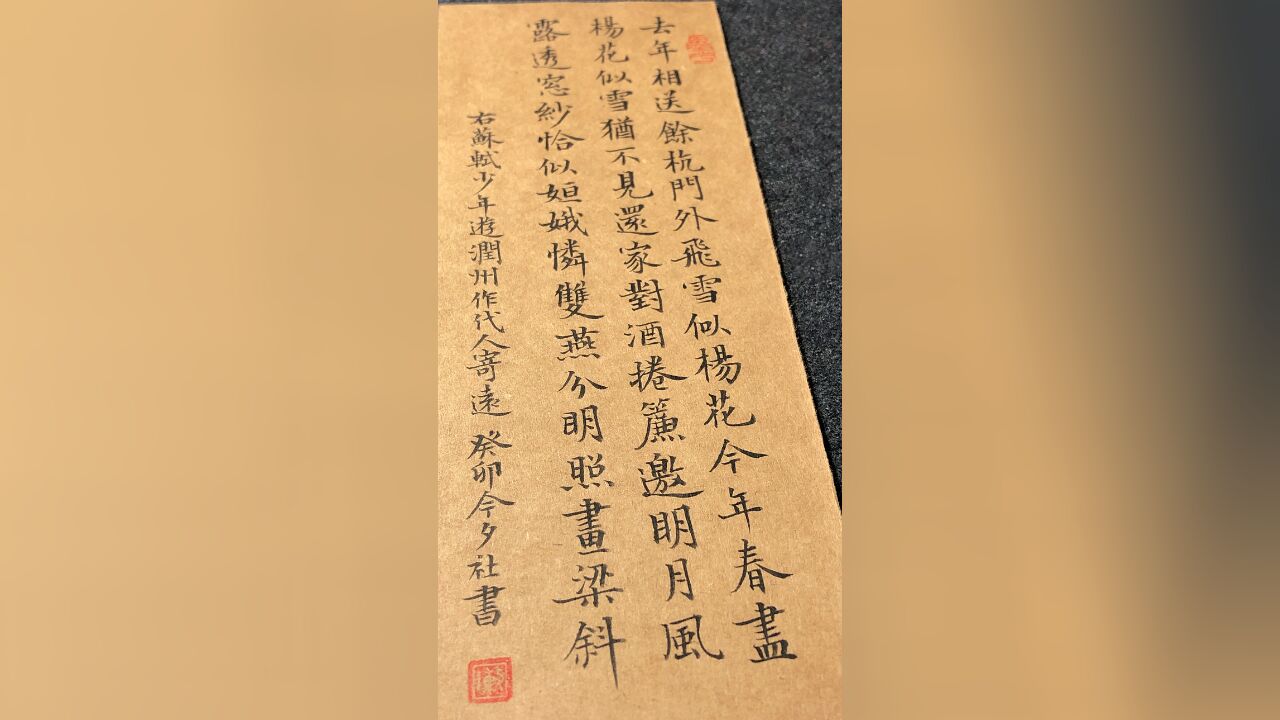 去年相送餘杭門外飛雪似楊花今年春盡
楊花似雪猶不見還家對酒捲簾邀明月風
露透窓紗恰似姮娥憐雙燕分明照畫梁斜
右蘇軾少年遊潤州作代人寄遠 癸卯今夕社書